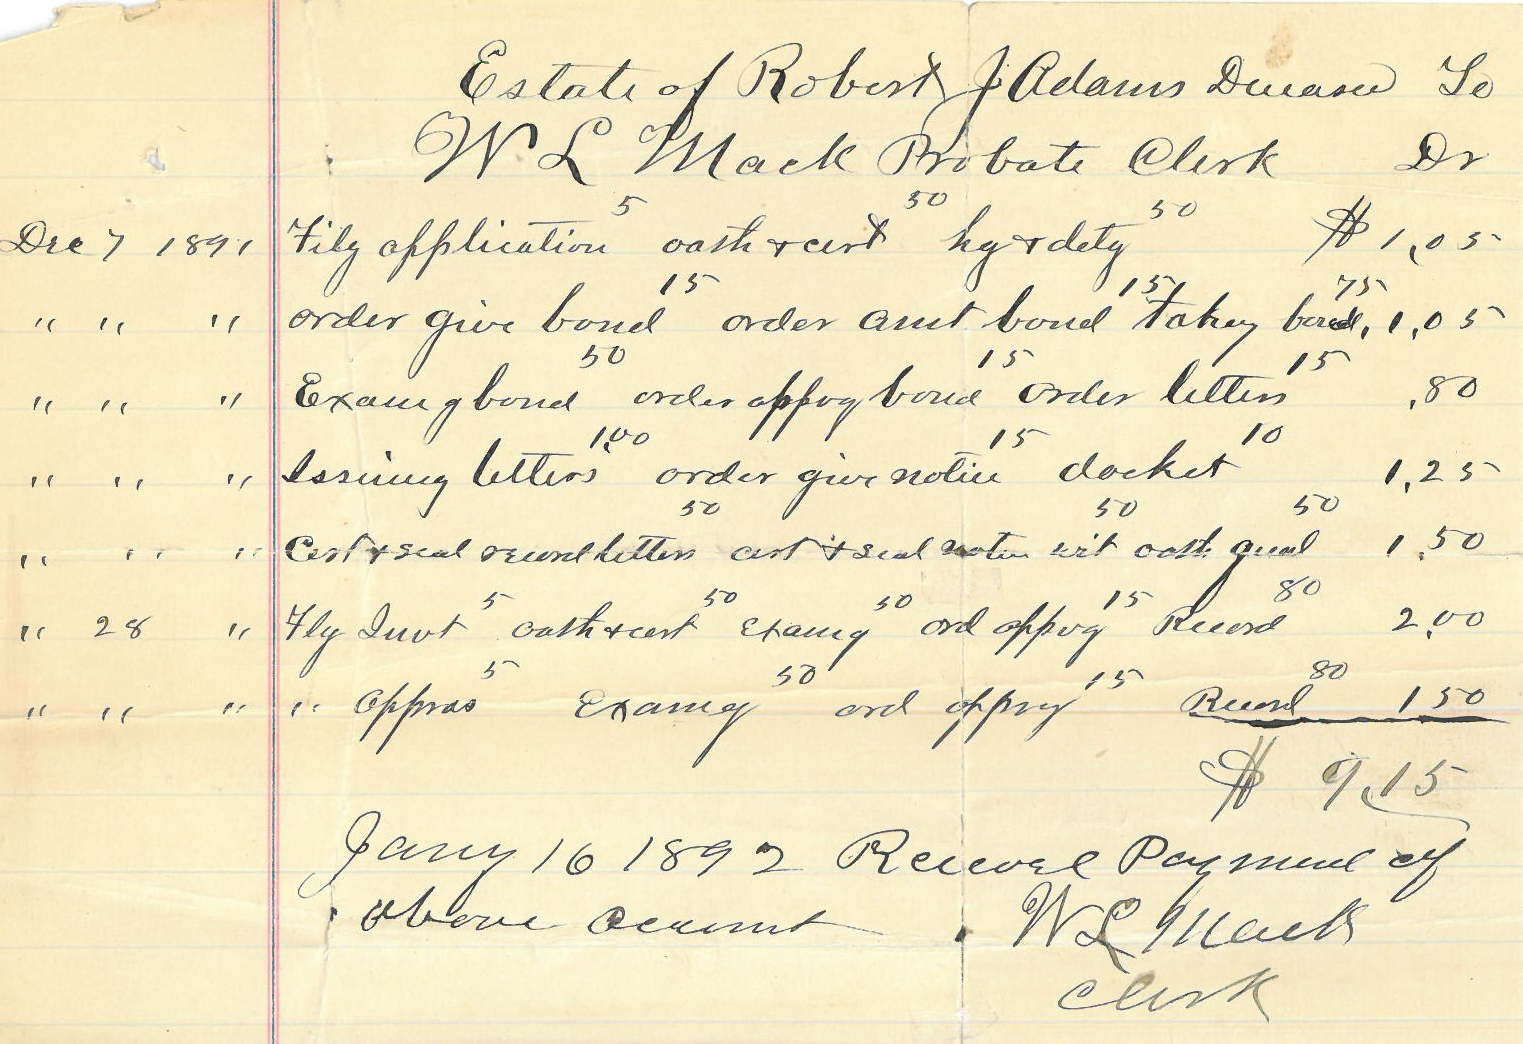 Estate of Robert J Adams Deceased To
W L Mack Probate Clerk Dr
Dec 7 1891 Filg application 5 oath & cert 50 hg & detg 50 $ 1,05
" " " order give bond 15 order amt bond 15 takeg bond, 75 1,05
" " " Examg bond 50 order appvg bond 15 order letters 15 ,80
" " " Issuing letters 1,00 order give notice 15 docket 10 1,25
" " " Cert & seal record letters 50 cert & seal notice 50 oath qual 50 1,50
" 28 " Flg Invt 5 oath & cert 50 Examg 50 ord appvg 15 Record 80 2,00
" " " " appras 5 Examg 50 ord appvg 15 Record 80 1 50
$ 9,15
Jany 16 1892 Received Payment of
above account . W L Mack
Clerk